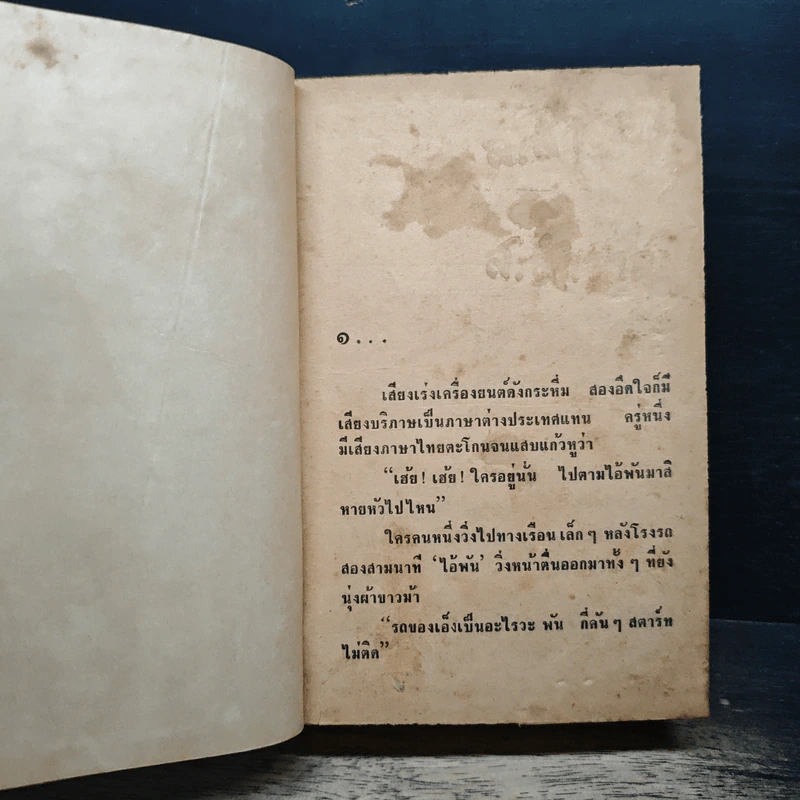 ๑...
เสียงเร่งเครื่องยนต์ดังกระหึ่ม สองอึดใจก็มี
เสียงบริภาษเป็นภาษาต่างประเทศแทน ครู่หนึ่ง
มีเสียงภาษาไทยตะโกนจนแสบแก้วหูว่า
“เฮ้ย! เฮ้ย! ใครอยู่นั้น ไปตามไอ้พันมาสิ
หายหัวไปไหน”
ใครคนหนึ่งวิ่งไปทางเรือนเล็กๆ หลังโรงรถ
สองสามนาที ‘ไอ้พัน’ วิ่งหน้าตื่นออกมาทั้งๆ ที่ยัง
นุ่งผ้าขาวม้า
“รถของเอ็งเป็นอะไรวะ พัน กี่ดันๆ สตาร์ท
ไม่ติด”